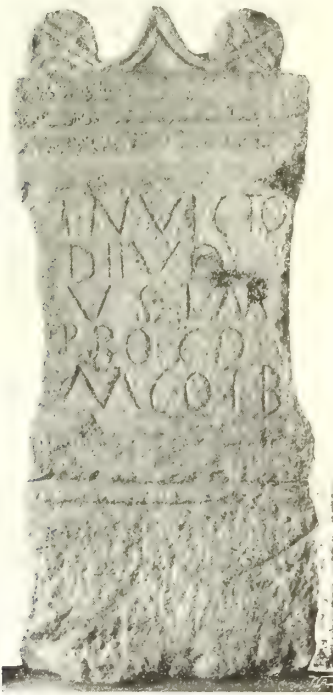 INVICTO
DIIVD
V S L M
P R O C O
M C O I B